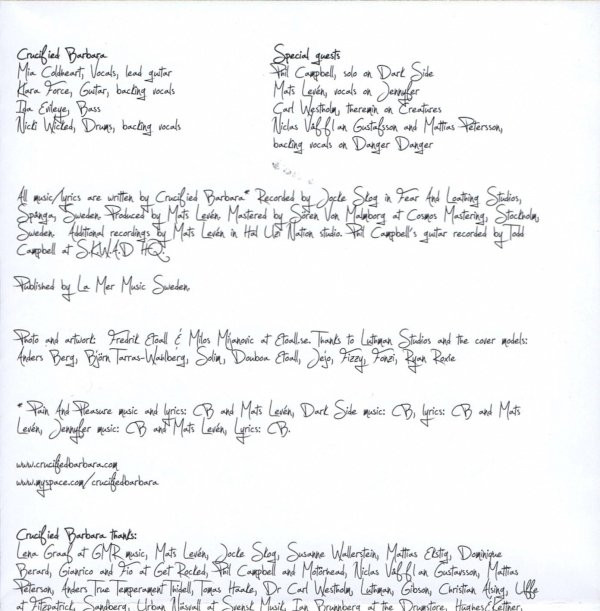 Crucified Barbara
Mia Coldheart, Vocals, lead guitar
Klara Force, Guitar, backing vocals
Ida Evileye, Bass
Nicki Wicked, Drums, backing vocals
Special guests
Phil Campbell, solo on Dark Side
Mats Levén, vocals on Jennyfer
Carl Westholm, theremin on Creatures
Niclas Våfflan Gustafsson and Mattias Petersson,
backing vocals on Danger Danger
All music/lyrics are written by Crucified Barbara* Recorded by Jocke Skog in Fear And Loathing Studios,
Spånga, Sweden. Produced by Mats Levén. Mastered by Sören Von Malmborg at Cosmos Mastering, Stockholm,
Sweden. Additional recordings by Mats Levén in Hal Uzi Nation studio. Phil Campbell's guitar recorded by Todd
Campbell at S.K.W.A.D HQ.
Published by La Mer Music Sweden.
Photo and artwork: Fredrik Etoall & Milos Mijanovic at Etoall.se. Thanks to Luthman Studios and the cover models:
Anders Berg, Björn Tarras-Wahlberg, Solim, Douboa Etoall, Jejo, Fizzy, Fonzi, Ryan Roxie
* Pain And Pleasure music and lyrics: CB and Mats Levén, Dark Side music: CB, lyrics: CB and Mats
Levén, Jennyfer music: CB and Mats Levén, Lyrics: CB.
www.crucifiedbarbara.com
www.myspace.com/crucifiedbarbara
Crucified Barbara thanks:
Lena Graaf at GMR music, Mats Levén, Jocke Skog, Susanne Wallerstein, Mattias Ekstig, Dominique
Berard, Gianrico and Fio at Get Rocked, Phil Campbell and Motörhead, Niclas Våfflan Gustavsson, Mattias
Peterson, Anders True Temperament Thidell, Tomas Haake, Dr Carl Westholm, Luthman, Gibson, Christian Alsing, Uffe
at Fitzpatrick, Sandberg, Urban Näsvall at Svensk Musik, Ian Brunnberg at the Drumstore, Hughes & Kettner,